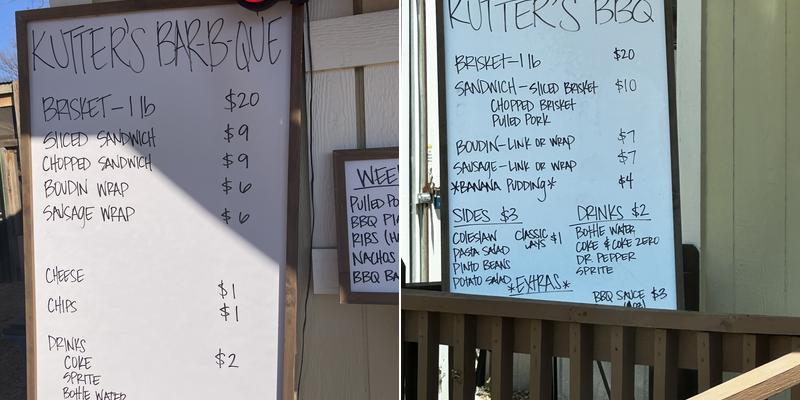 KUTTER'S BAR-B-QUE
BRISKET-1 lb $20
SLICED SANDWICH $9
CHOPPED SANDWICH $9
BOUDIN WRAP $6
SAUSAGE WRAP $6
CHEESE $1
CHIPS $1
DRINKS $2
COKE
SPRITE
BOTTLE WATER
PULLED
BBQ
RIBS
NACHOS
BBQ
KUTTER'S BBQ
BRISKET-1 lb $20
SANDWICH-SLICED BRISKET $10
CHOPPED BRISKET
PULLED PORK
BOUDIN-LINK OR WRAP $7
SAUSAGE-LINK OR WRAP $7
*BANANA PUDDING* $4
SIDES $3
COLESLAW
PASTA SALAD
PINTO BEANS
POTATO SALAD
CLASSIC LAYS $1
DRINKS $2
BOTTLE WATER
COKE & COKE ZERO
DR. PEPPER
SPRITE
*EXTRAS*
BBQ SAUCE $3